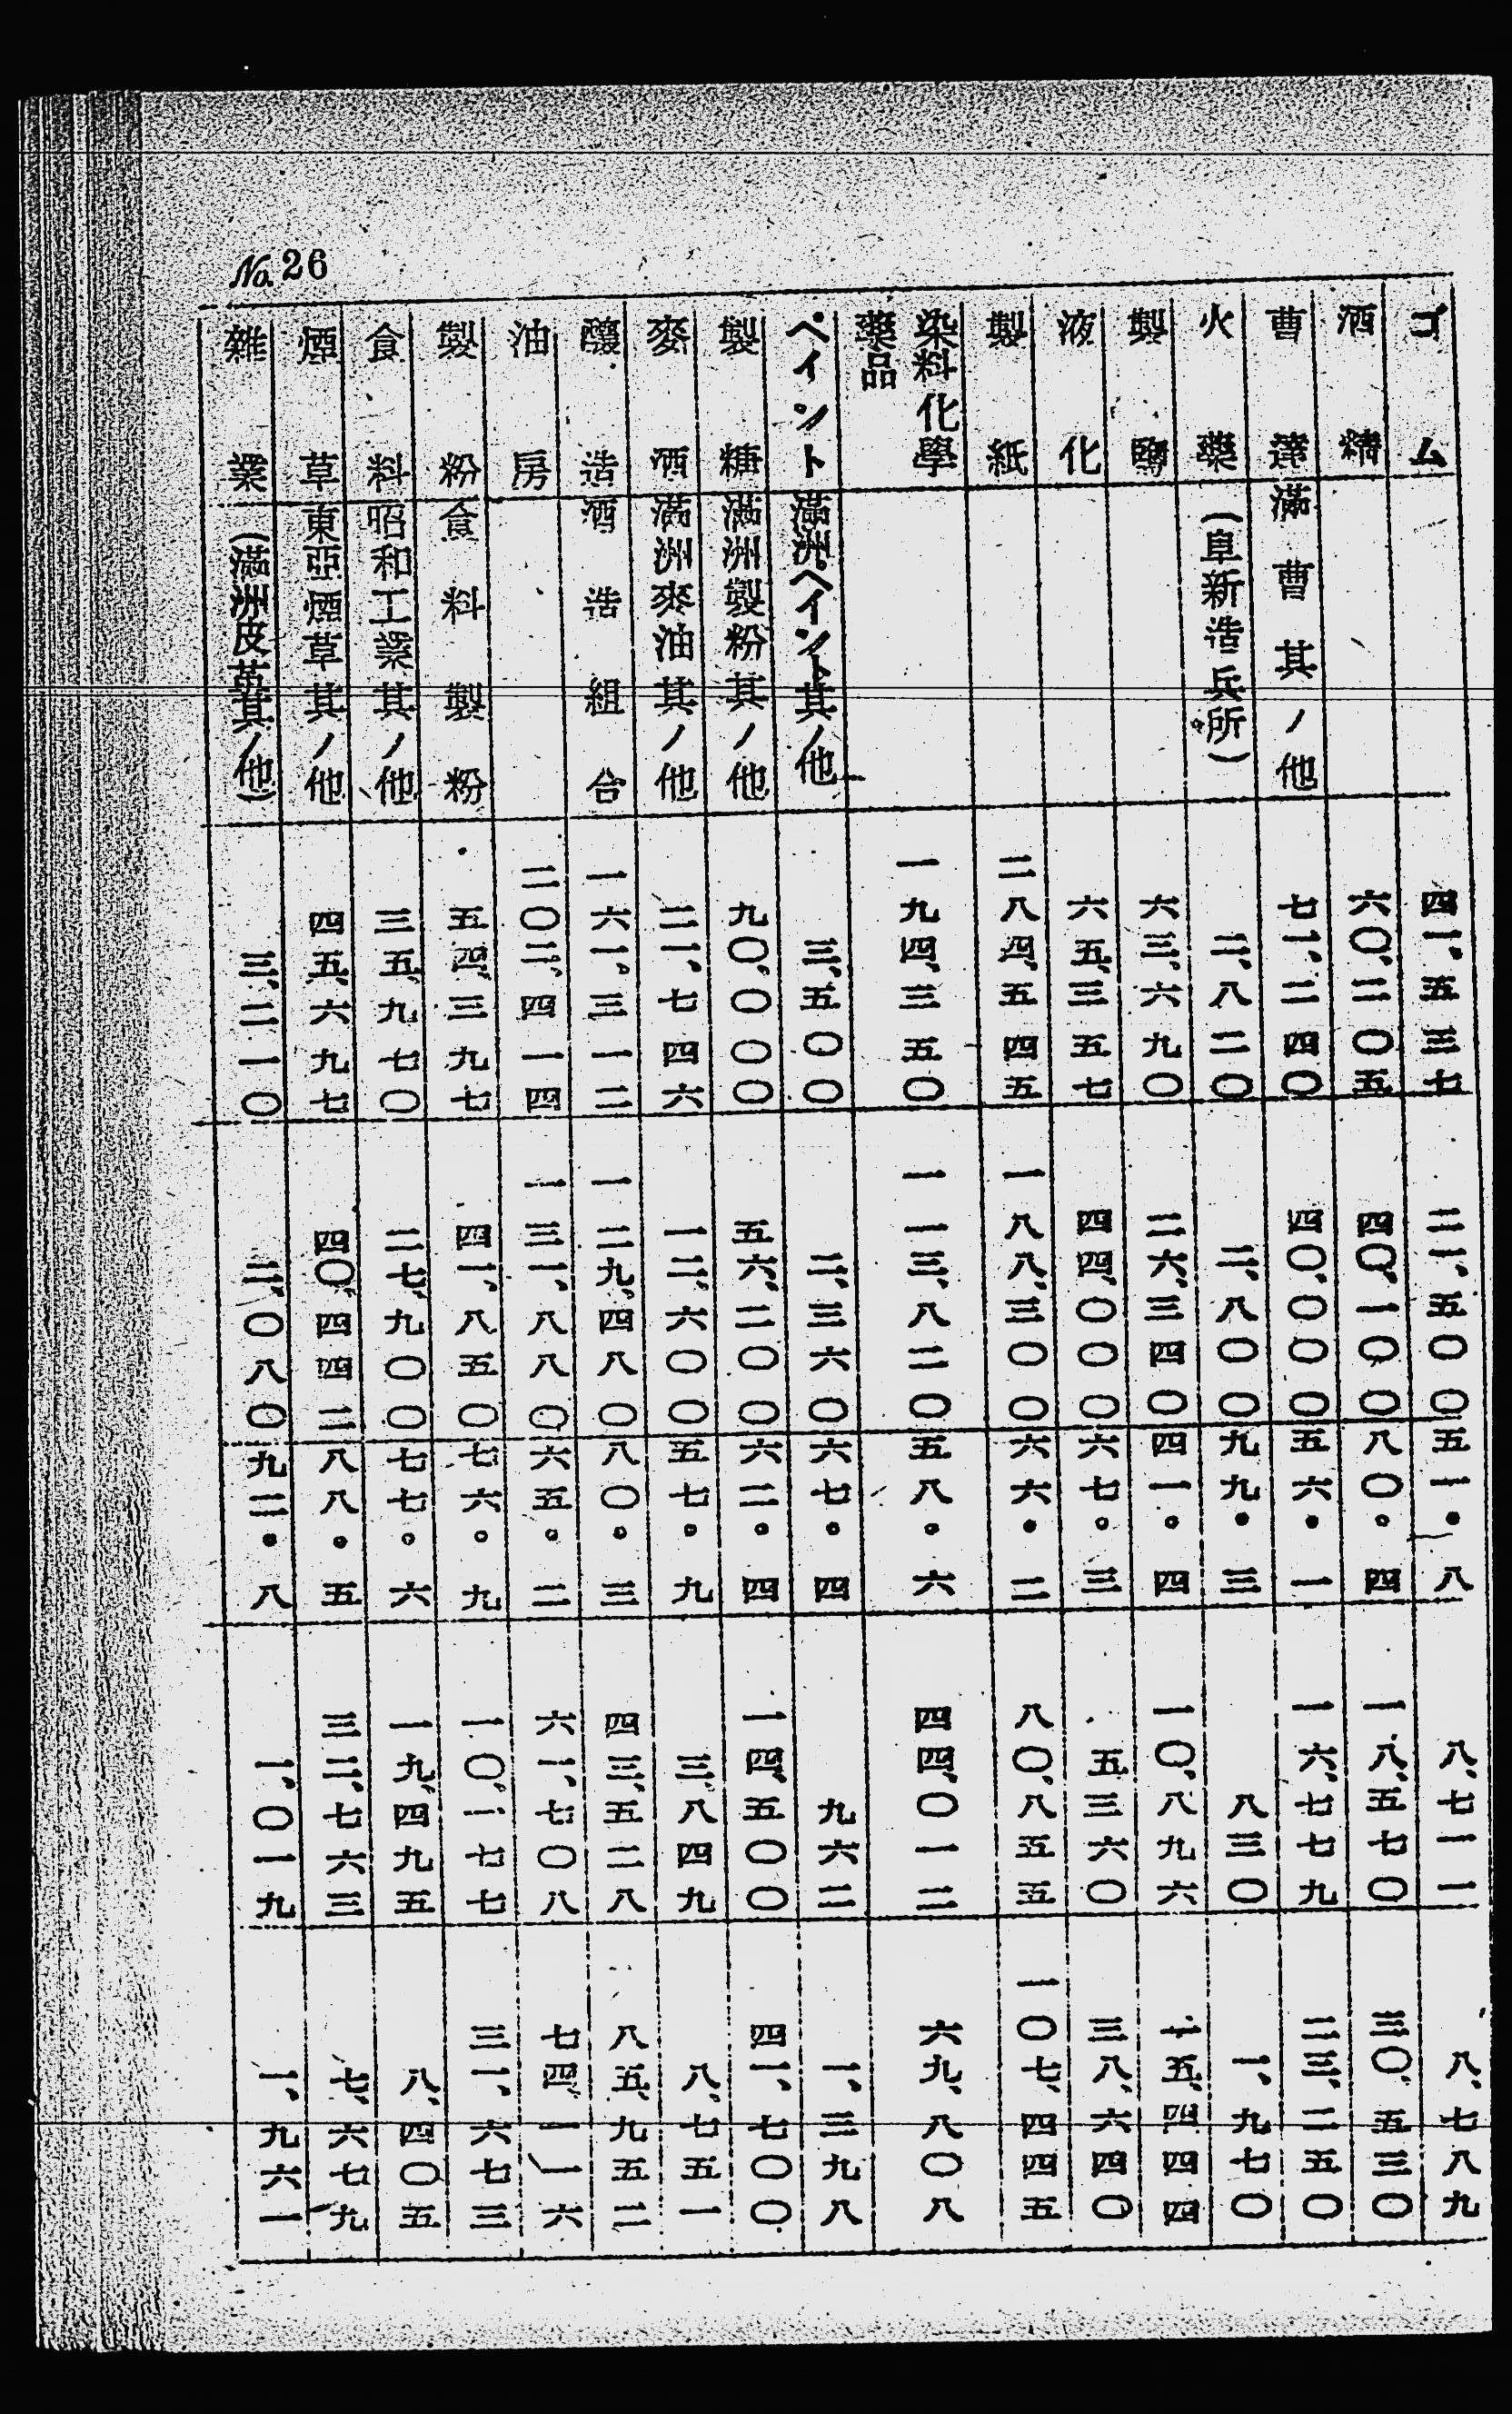 No. 26
ゴム 四一、五三七 二一、五〇〇 五一・八 八、七一一 八、七八九
酒精 六〇、二〇五 四〇、一〇〇 八〇。四 一八、五七〇 三〇、五三〇
曹達 滿曹其ノ他 七一、二四〇 四〇、〇〇〇 五六・一 一六、七七九 二三、二五〇
火藥 (阜新造兵所) 二、八二〇 二、八〇〇 九九・三 八三〇 一、九七〇
製鹽 六三、六九〇 二六、三四〇 四一。四 一〇、八九六 一五、四四四
液化 六五、三五七 四四、〇〇〇 六七。三 五三六〇 三八、六四〇
製紙 二八四、五四五 一八八、三〇〇 六六・二 八〇、八五五 一〇七、四四五
染料化學
藥品 一九四、三五〇 一一三、八二〇 五八・六 四四、〇一二 六九、八〇八
ペイント 滿洲ペイント其ノ他 三、五〇〇 二、三六〇 六七。四 九六二 一、三九八
製糖 滿洲製粉其ノ他 九〇、〇〇〇 五六、二〇〇 六二。四 一四、五〇〇 四一、七〇〇
麥酒 滿洲麥油其ノ他 二一、七四六 一二、六〇〇 五七。九 三、八四九 八、七五一
釀造 酒造組合 一六一。三一二 一二九、四八〇 八〇。三 四三、五二八 八五、九五二
油房 二〇二、四一四 一三一、八八〇 六五。二 六一、七〇八 七四、一一六
製粉 食料製粉 五四、三九七 四一、八五〇 七六。九 一〇、一七七 三一、六七三
食料 昭和工業其ノ他 三五、九七〇 二七、九〇〇 七七。六 一九、四九五 八、四〇五
煙草 東亞煙草其ノ他 四五、六九七 四〇、四四二 八八。五 三二、七六三 七、六七九
雜業 (滿洲皮革其ノ他) 三、二一〇 二、〇八〇 九二・八 一、〇一九 一、九六一